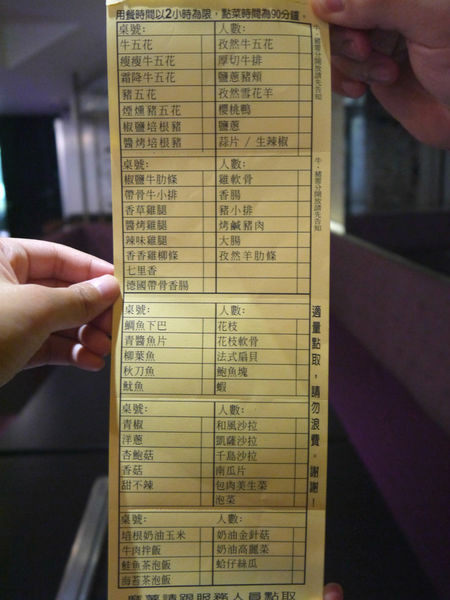 用餐時間以2小時為限，點菜時間為90分鐘。
桌號: 人數:
牛五花 孜然牛五花
瘦瘦牛五花 厚切牛排
霜降牛五花 鹽蔥豬頰
豬五花 孜然雪花羊
煙燻豬五花 櫻桃鴨
椒鹽培根豬 鹽蔥
醬烤培根豬 蒜片 / 生辣椒
桌號: 人數:
椒鹽牛肋條 雞軟骨
帶骨牛小排 香腸
香草雞腿 豬小排
醬烤雞腿 烤鹹豬肉
辣味雞腿 大腸
香香雞柳條 孜然羊肋條
七里香
德國帶骨香腸
桌號: 人數:
鯛魚下巴 花枝
青醬魚片 花枝軟骨
柳葉魚 法式扇貝
秋刀魚 鮑魚塊
魷魚 蝦
桌號: 人數:
青椒 和風沙拉
洋蔥 凱薩沙拉
杏鮑菇 千島沙拉
香菇 南瓜片
甜不辣 包肉美生菜
泡菜
桌號: 人數:
培根奶油玉米 奶油金針菇
牛肉拌飯 奶油高麗菜
鮭魚茶泡飯 蛤仔絲瓜
海苔茶泡飯
請跟服務人員點取
牛、豬需分開放請先告知
牛、豬需分開放請先告知
適量點取，請勿浪費。謝謝！